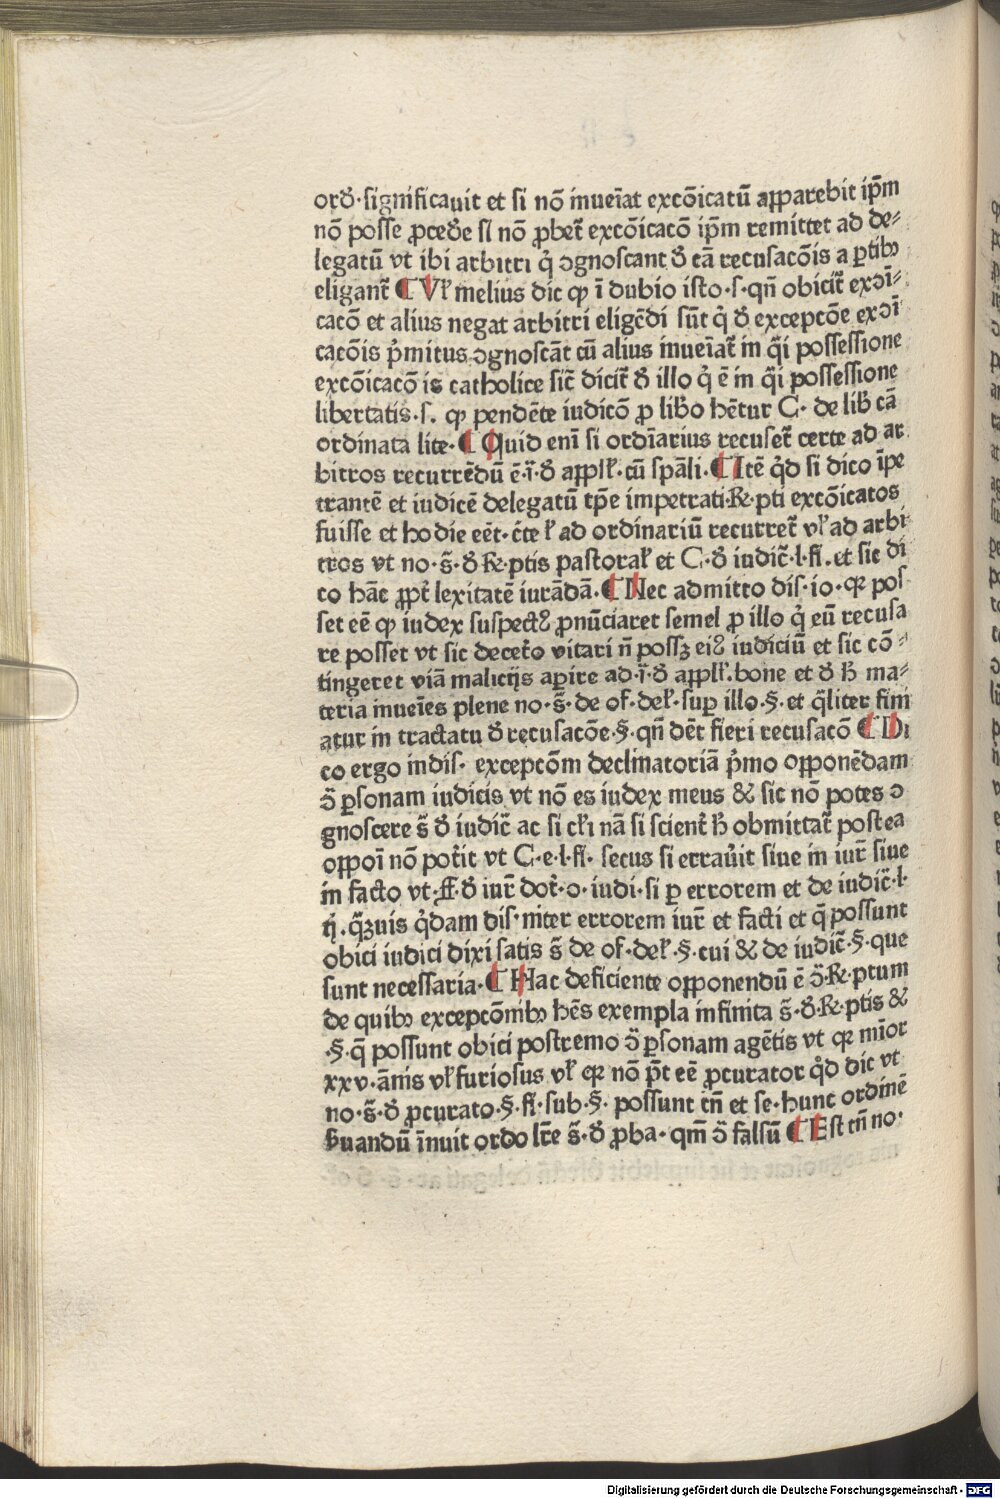 orꝺ̄·significauit et si nō inueīat excōicatū apparebit ip̄m
nō posse ꝓceꝺ̄e sꝉ nō ꝓbet̄ excōicacō ip̄m remittet ad de⸗
legatū vt ibi arbitri q̇ ɔgnoscant ꝺ̄ eā recusacōis a ꝑtibꝫ
eligant̄ ¶ Vꝉ melius dic ꝙ ī dubio isto·s·qn̄ obicit̄ exɔī⸗
cacō et alius negat arbitri eligēdi sūt q̇ ꝺ̄ excepcōe exɔī
cacōis p̄mitus ɔgnoscāt cū alius inueīat̄ in q̄i possessione
excōicacōis catholice sic̄ dicit̄ ꝺ̄ illo q̇ ē in q̄i possessione
libertatis·s. ꝙ pendēte iudicō ꝓ libo hētur C· de lib̄ cā
ordinata lite·¶ Quid enī si ordīarius recuset̄ certe ad ar
bitros recurrēdū ē·ī·ꝺ̄ appꝉꝉ·cū spāli·¶ Itē q̇d si dico īpe
trantē et iudicē delegatū tp̄e impetrati·℞·pti excōicatos
fuisse et hodie eēt·c̄te ꝉ ad ordinariū recurret̄ vꝉ ad arbi
tros vt no·s̄·ꝺ̄ ℞·ptis pastoraꝉ et C·ꝺ̄ iudic̄·l·fi.et sic di
co hāc ꝓpt̄ lexitatē iurādā·¶ Nec admitto dis·io·ꝙ pos
set eē ꝙ iudex suspectꝰ ꝓnūciaret semel ꝓ illo q̇ eū recusa
re posset vt sic decet̄o vitari n̄ possꝫ eiꝰ iudiciū et sic cō⸗
tingeret viā malicijs aꝑire ad·ī·ꝺ̄ appꝉꝉ.bone et ꝺ̄ h̄ ma⸗
teria inueīes plene no·s̄·de of·deꝉ·suꝑ illo·§·et q̄liter fini
atur in tractatu ꝺ̄ recusacōe·§·qn̄ dēt fieri recusacō ¶ Di
co ergo indis· excepcōm declinatoriā p̄mo opponēdam
ɔ̄ ꝑsonam iudicis vt nō es iudex meus & sic nō potes ɔ
gnoscere s̄ ꝺ̄ iudic̄ ac si cꝉi nā si scient̄ h̄ obmittat̄ postea
oppoī nō pot̄it vt C·e·l·fi· secus si errau̇it siue in iur̄ siue
in facto vt·ff·ꝺ̄ iur̄ dot̄·o·iudi·si ꝑ errorem et de iudic̄·l·
ij.q̄ꝫuis q̇dam dis·inter errorem iur̄ et facti et q̄ possunt
obici iudici dixi satis s̄ de of·deꝉ·§·cui & de iudic̄·§·que
sunt necessaria·¶ Hac deficiente opponendū ē ɔ̄·℞·ptum
de quibꝫ excepcōnibꝫ hēs exempla infinita s̄·ꝺ̄·℞·ptis &
·§·q̄ possunt obici postremo ɔ̄ ꝑsonam agētis vt ꝙ mīor
xxv·ānis vꝉ furiosus vꝉ ꝙ nō p̄t eē ꝓcurator q̇d dic vt
no·s̄·ꝺ̄ ꝓcurato·§·fi·sub·§· possunt tn̄ et se·hunc ordinē
ẜuandū īnuit ordo lr̄e s̄·ꝺ̄ ꝓba·qm̄ ɔ̄ falsū ¶ Est tn̄ no·
Digitalisierung gefördert durch die Deutsche Forschungsgemeinschaft - DFG